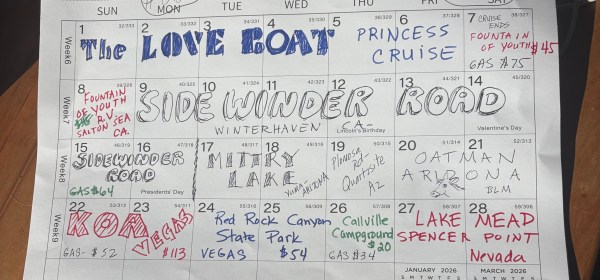 SUN MON TUE WED THU FRI SAT
Week6
1 32/333 2 33/332 3 34/331 4 35/330 5 36/329 6 37/328 7 38/327
The LOVE BOAT PRINCESS CRUISE
CRUISE ENDS
FOUNTAIN OF YOUTH $45
GAS $75
Week7
8 39/326 9 40/325 10 41/324 11 42/323 12 43/322 13 44/321 14 45/320
FOUNTAIN OF YOUTH
R.V
SALTON SEA
CA.
SIDEWINDER ROAD
WINTERHAVEN CA-
Lincoln's Birthday
Valentine's Day
Week8
15 46/319 16 47/318 17 48/317 18 49/316 19 50/315 20 51/314 21 52/313
SIDEWINDER ROAD
GAS $64
Presidents' Day
LAKE
Yuma
Quartzsite
AZ
OATMAN
ARIZONA
BLM
Week9
22 53/312 23 54/311 24 55/310 25 56/309 26 57/308 27 58/307 28 59/306
KOA VEGAS
GAS- $52 $113
Red Rock Canyon
State Park
VEGAS $54
Callville
Campground
$20
GAS $34
LAKE MEAD
SPENCER POINT
Nevada
JANUARY 2026 MARCH 2026
S M T W T F S S M T W T F S